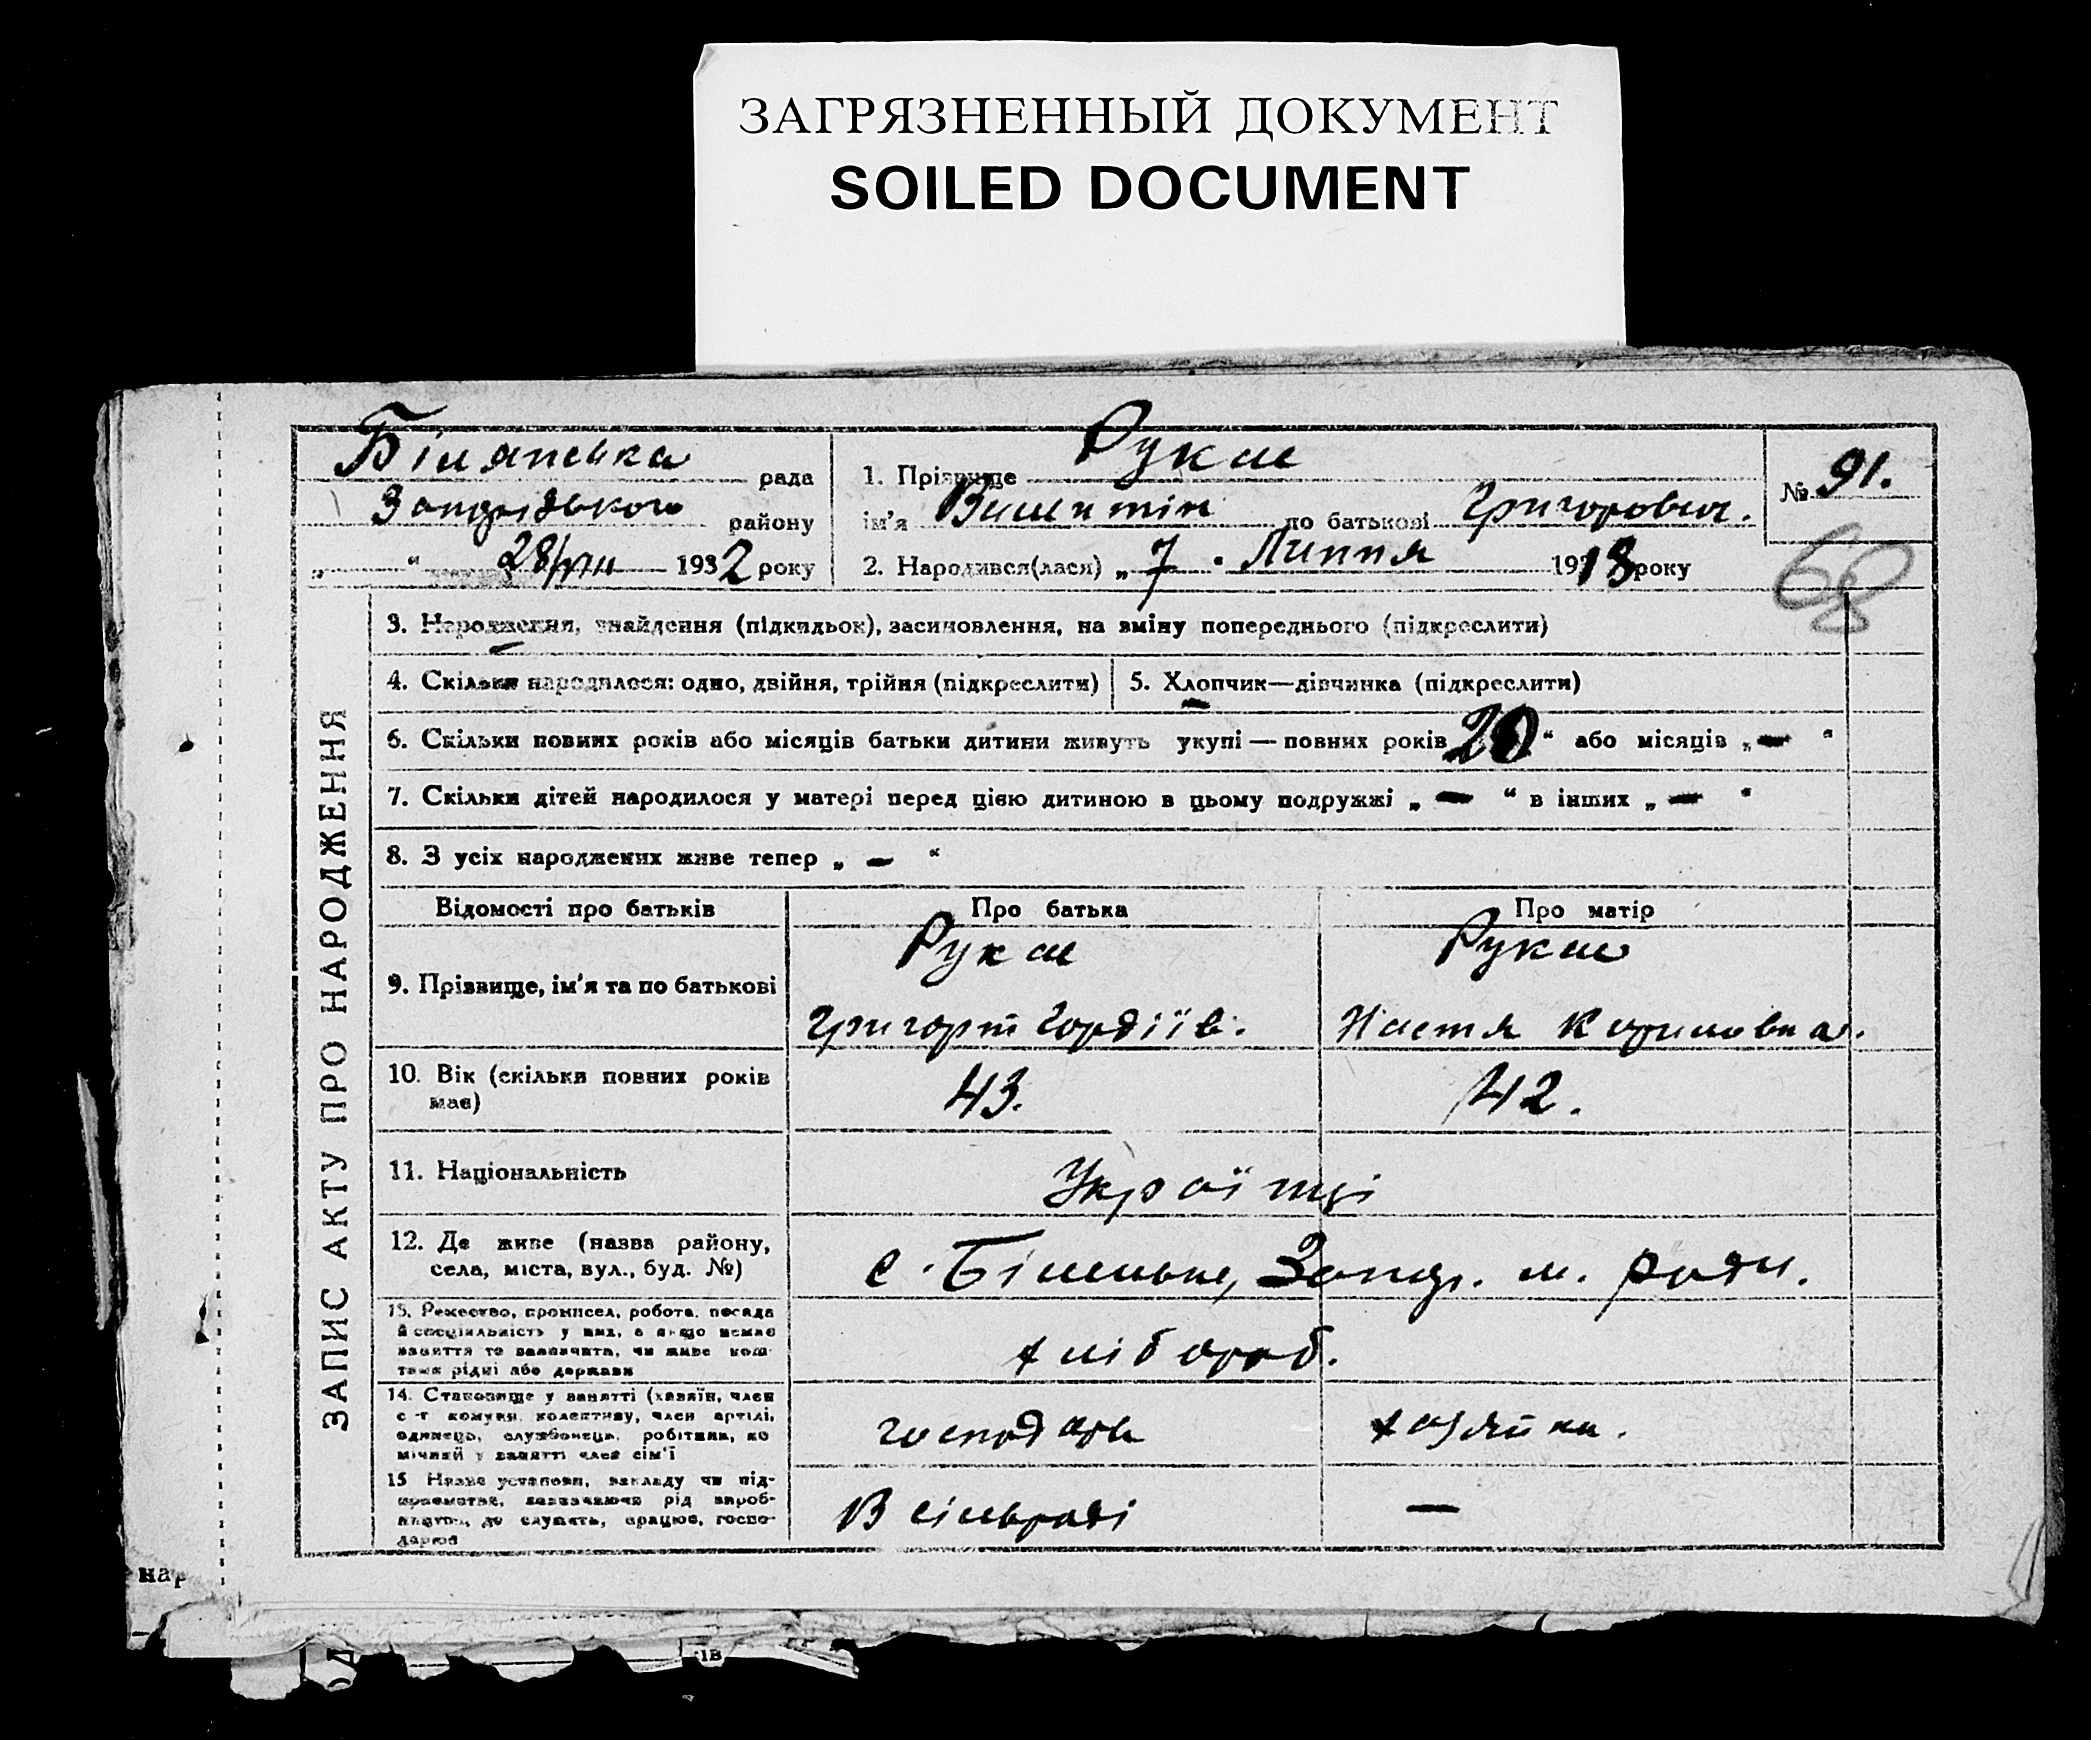 ЗАГРЯЗНЕННЫЙ ДОКУМЕНТ
SOILED DOCUMENT
рада
району
„ “ 28/VIII 1932 року
1. Прізвище Рукас
ім’я по батькові Григорович.
2. Народився(лася) „7. Липня 1918 року
№ 91.
68
ЗАПИС АКТУ ПРО НАРОДЖЕННЯ
3. Народження, знайдення (підкидьок), засиновлення, на зміну попереднього (підкреслити)
4. Скільки народилося: одно, двійня, трійня (підкреслити)
5. Хлопчик—дівчинка (підкреслити)
6. Скільки повних років або місяців батьки дитини живуть укупі — повних років 20 “ або місяців „ — “
7. Скільки дітей народилося у матері перед цією дитиною в цьому подружжі „ — “ в інших „ — “
8. З усіх народжених живе тепер „ — “
Відомості про батьків
Про батька
Про матір
9. Прізвище, ім’я та по батькові
Рукас
Григорій Гордіїв.
Рукас
Настя
10. Вік (скільки повних років
має)
43.
42.
11. Національність
Українці
12. Де живе (назва району,
села, міста, вул., буд. №)
с. Біленьке, Запор. м. ради.
13. Ремество, промисел, робота, посада
й спеціяльність у них, а якщо немає
заняття то зазначити, чи живе кош-
тами рідні або держави
хлібороб.
14. Становище у занятті (хазяїн, член
с-г комуни, колективу, член артілі,
одинець, службовець, робітник, по
мічний у занятті член сім’ї
господарь
хазяйка.
15 Назва установи, закладу чи під-
приємства, зазначаючи рід вироб-
ництва, де служить, працює, госпо-
дарює
В сільраді
—
нар